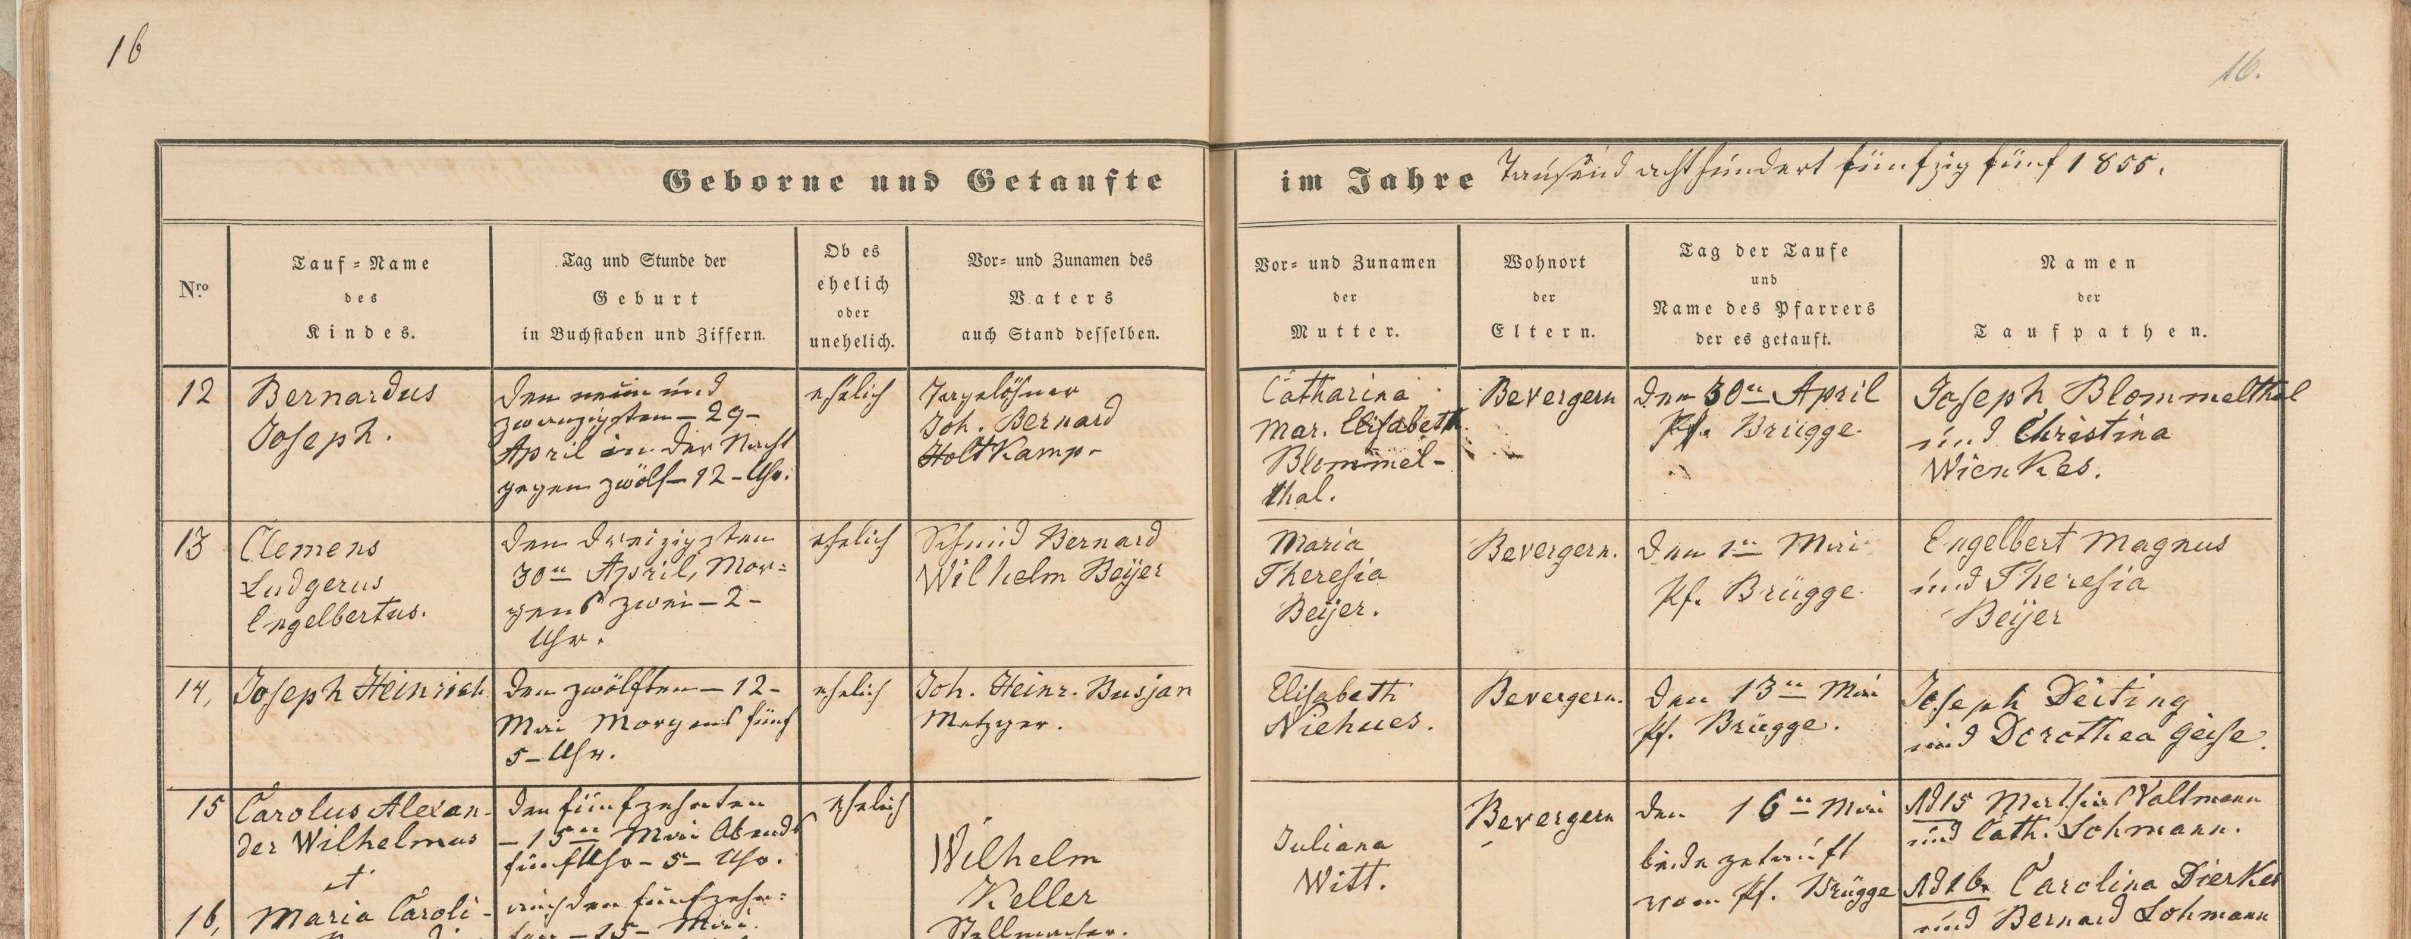 16
16.
Geborne und Getaufte
im Jahre Tausend achthundert fünfzig fünf 1855.
Nro
Tauf-Name
des
Kindes.
Tag und Stunde der
Geburt
in Buchstaben und Ziffern.
Ob es
ehelich
oder
unehelich.
Vor- und Zunamen des
Vaters
auch Stand desselben.
Vor- und Zunamen
der
Mutter.
Wohnort
der
Eltern.
Tag der Taufe
und
Name des Pfarrers
der es getauft.
Namen
der
Taufpathen.
12
Bernardus
Joseph.
den neun und
zwanzigsten - 29 -
April in der Nacht
gegen zwölf - 12 - Uhr.
ehelich
Tagelöhner
Joh. Bernard
Holtkamp -
Catharina
Mar. Elisabeth
Blommel-
thal.
Bevergern
den 30ten April
Pf. Brügge.
Joseph Blommelthal
und Christina
Wienkes.
13
Clemens
Ludgerus
Engelbertus.
den dreizigsten
30ten April, Mor-
gens zwei - 2 -
Uhr.
ehelich
Schmid Bernard
Wilhelm Beijer
Maria
Theresia
Beijer.
Bevergern.
den 1ten Mai
Pf. Brügge.
Engelbert Magnus
und Theresia
Beijer
14,
Joseph Heinrich
den zwölften - 12 -
Mai Morgens fünf
5 - Uhr.
ehelich
Joh. Heinr. Busjan
Metzger.
Elisabeth
Niehues.
Bevergern.
den 13ten Mai
Pf. Brügge.
Joseph Deiting
und Dorothea Geise.
15
Carolus Alexan-
der Wilhelmus
et
16,
Maria Caroli-
den fünfzehnten
- 15ten Mai Abends
fünf Uhr - 5 - Uhr.
auch den fünfzehn-
ten - 15 - Mai
ehelich
Wilhelm
Keller
Stellmacher.
Juliana
Witt.
Bevergern
den 16ten Mai
beide getauft
vom Pf. Brügge
Ad 15 Voltmann
und Cath. Lohmann.
Ad 16. Carolina Dierkes
und Bernard Lohmann